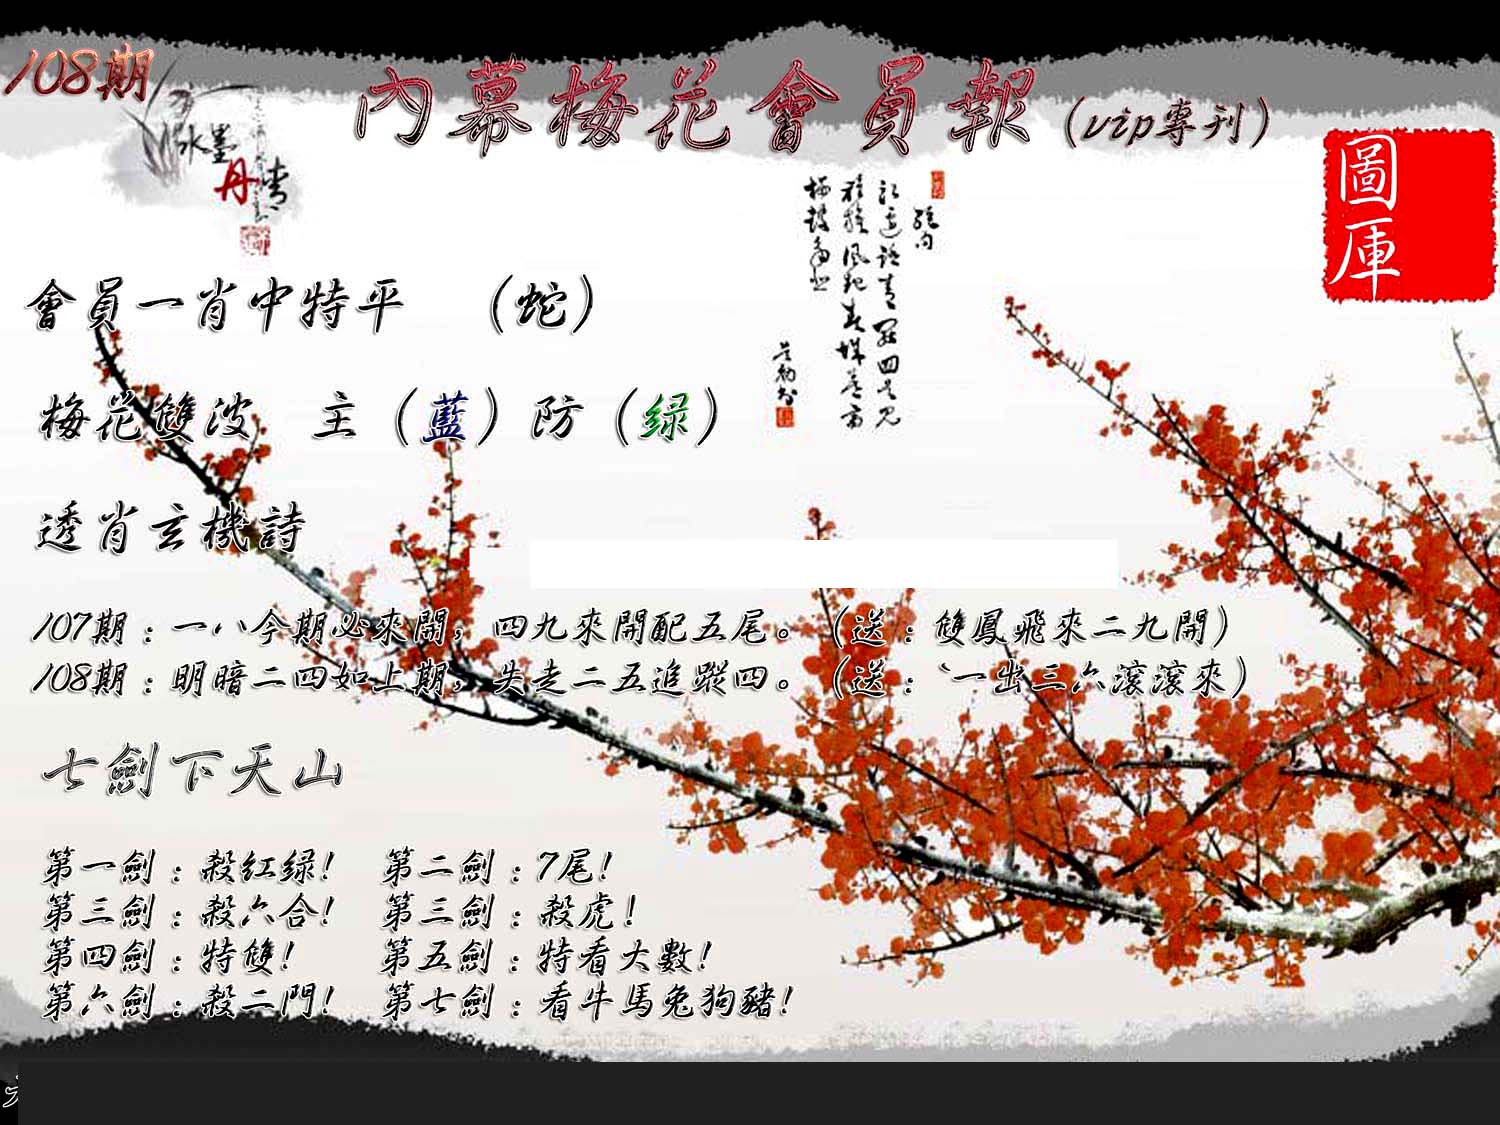 108期
內幕梅花會員報(vip專刊)
水墨
丹青
圖庫
會員一肖中特平 (蛇)
梅花雙波 主(藍)防(绿)
透肖玄機詩
107期:一八今期必來開,四九來開配五尾。(送:雙鳳飛來二九開)
108期:明暗二四如上期,失走二五追蹤四。(送:`一出三六滾滾來)
七劍下天山
第一劍:殺紅绿! 第二劍:7尾!
第三劍:殺六合! 第三劍:殺虎!
第四劍:特雙! 第五劍:特看大數!
第六劍:殺二門! 第七劍:看牛馬兔狗豬!